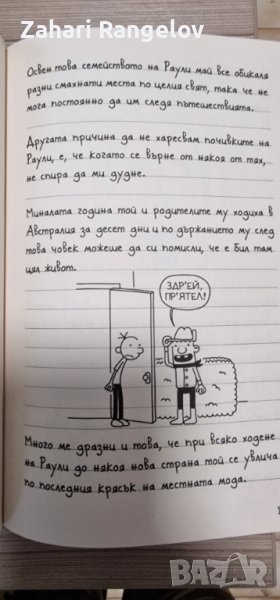 Zahari Rangelov
Освен това семейството на Раули май все обикаля
разни смахнати места по целия свят, така че не
мога постоянно да им следя пътешествията.
Другата причина да не харесвам почивките на
Раули, е, че когато се върне от някоя от тях,
не спира да ми дудне.
Миналата година той и родителите му ходиха в
Австралия за десет дни и по държанието му след
това човек можеше да си помисли, че е бил там
цял живот.
ЗДР'ЕЙ,
ПР'ЯТЕЛ!
Много ме дразни и това, че при всяко ходене
на Раули до някоя нова страна той се увлича
по последния крясък на местната мода.
bazar.bg